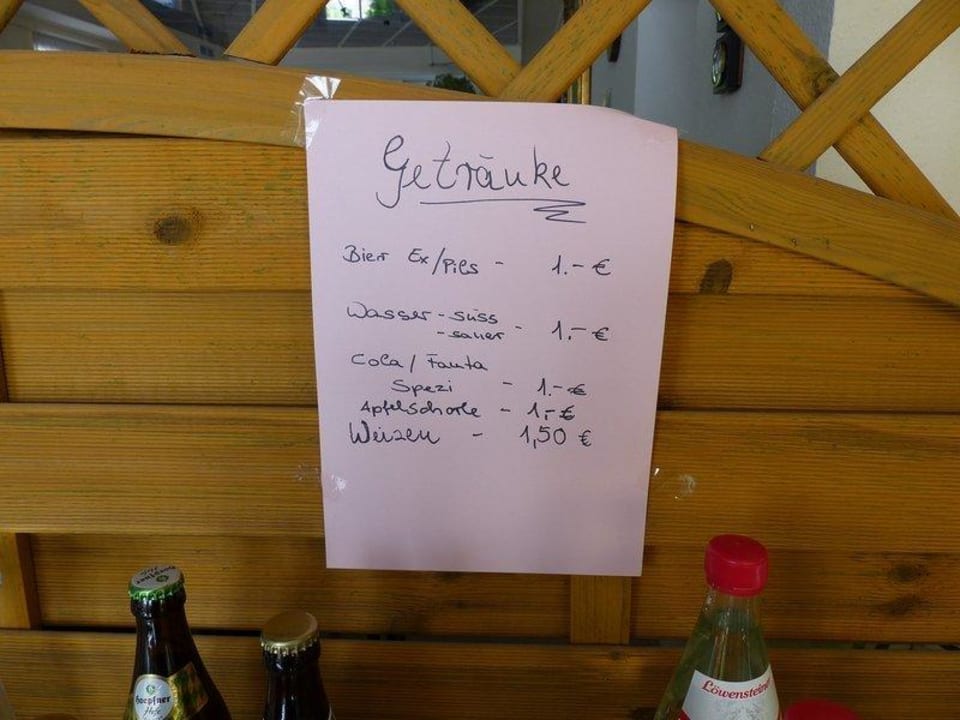 Getränke
Bier Ex/Pils - 1.- €
Wasser - süss
- sauer - 1.- €
Cola / Fanta
Spezi - 1.- €
Apfelschorle - 1,- €
Weizen - 1,50 €
hoepfner
hoepfner
Hefe
Löwensteiner